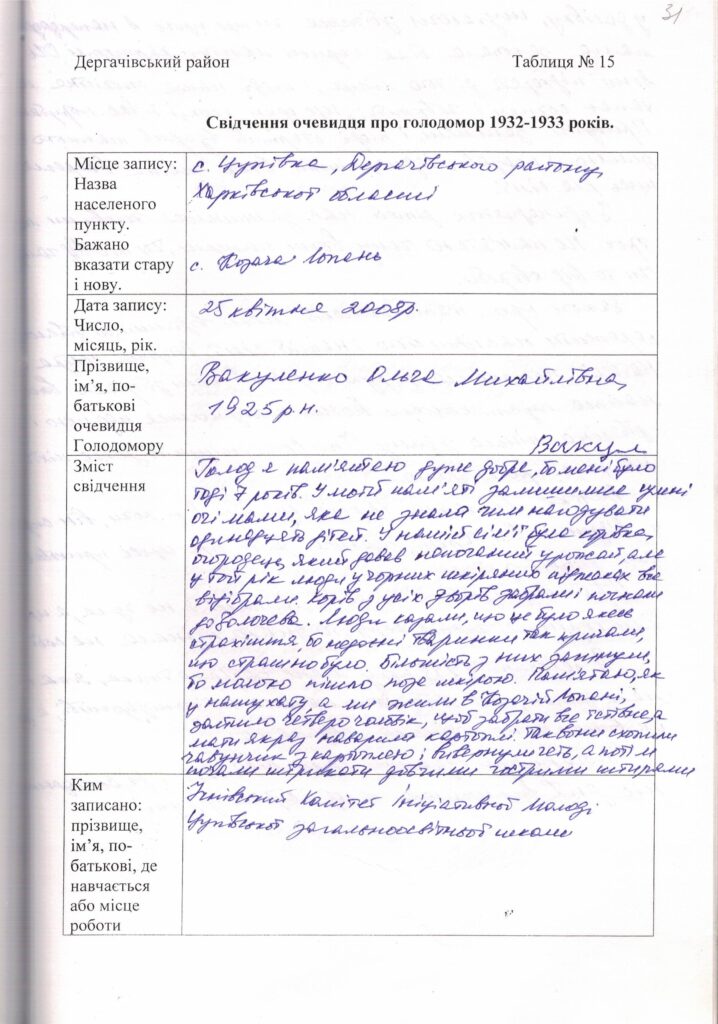 31
Дергачівський район Таблиця № 15
Свідчення очевидця про голодомор 1932-1933 років.
Місце запису:
Назва
населеного
пункту.
Бажано
вказати стару
і нову.
с. Цупівка, Дергачівського району
Харківської області
с. Козача Лопань
Дата запису:
Число,
місяць, рік.
25 квітня 2008р.
Прізвище,
ім’я, по-
батькові
очевидця
Голодомору
Вакуленко Ольга Михайлівна,
1925 р.н.
Вакул
Зміст
свідчення
Голод я пам'ятаю дуже добре, бо мені було
тоді 7 років. У моїй пам'яті залишилися сумні
очі мами, яка не знала чим нагодувати
одинадцять дітей. У нашій сім'ї була корівка,
огородець, який давав непоганий урожай, але
у той рік люди у чорних шкіряних піджаках все
відібрали. Корів з усіх дворів забрали і погнали
до Золочева. Люди казали, що це було якесь
страхіття, бо недоєні тваринки так кричали,
що страшно було. Більшість з них загинули,
бо молоко пішло поза шкірою. Пам'ятаю, як
у нашу хату, а ми жили в Козачій Лопані,
зайшло четверо чоловік, щоб забрати все їстівне, а
мати якраз наварила картоплі. Так вони схопили
чавунчик з картоплею і вивернули геть, а потім
почали штрикати довгими гострими штирями
Ким
записано:
прізвище,
ім’я, по-
батькові, де
навчається
або місце
роботи
Учнівський Комітет Ініціативної Молоді
Цупівської загальноосвітньої школи